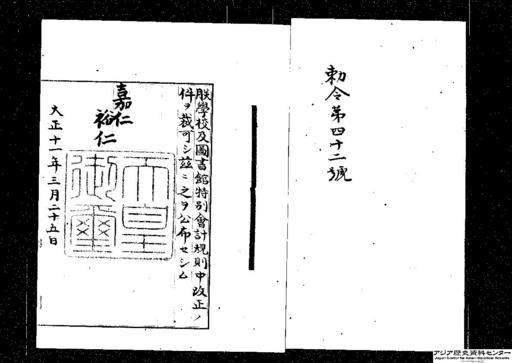 勅令第四十二號
朕學校及圖書館特別會計規則中改正ノ
件ヲ裁可シ茲ニ之ヲ公布セシム
嘉仁
裕仁
天皇
御璽
大正十一年三月二十五日
アジア歴史資料センター
Japan Center for Asian Historical Records